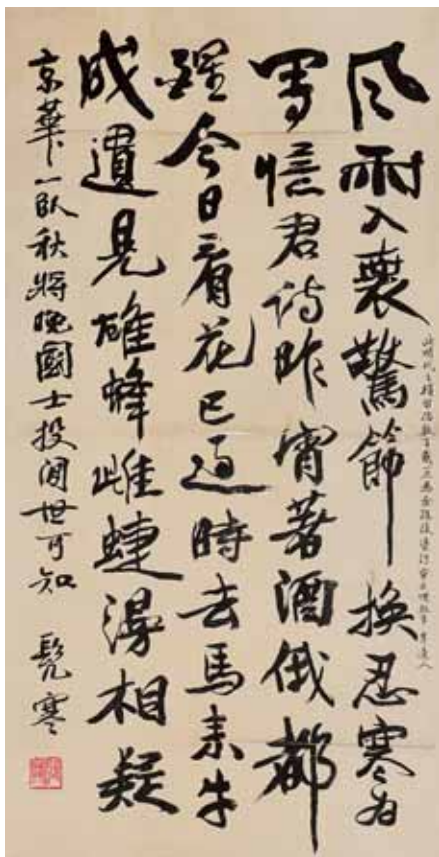 風雨入褱驚節換忍寒為
寫憶君詩昨宵著酒俄都
醒今日看花已過時去馬來牛
成遺見雄蜂雌蜨漫相疑
京華一臥秋將晚國士投閒世可知 髡寒